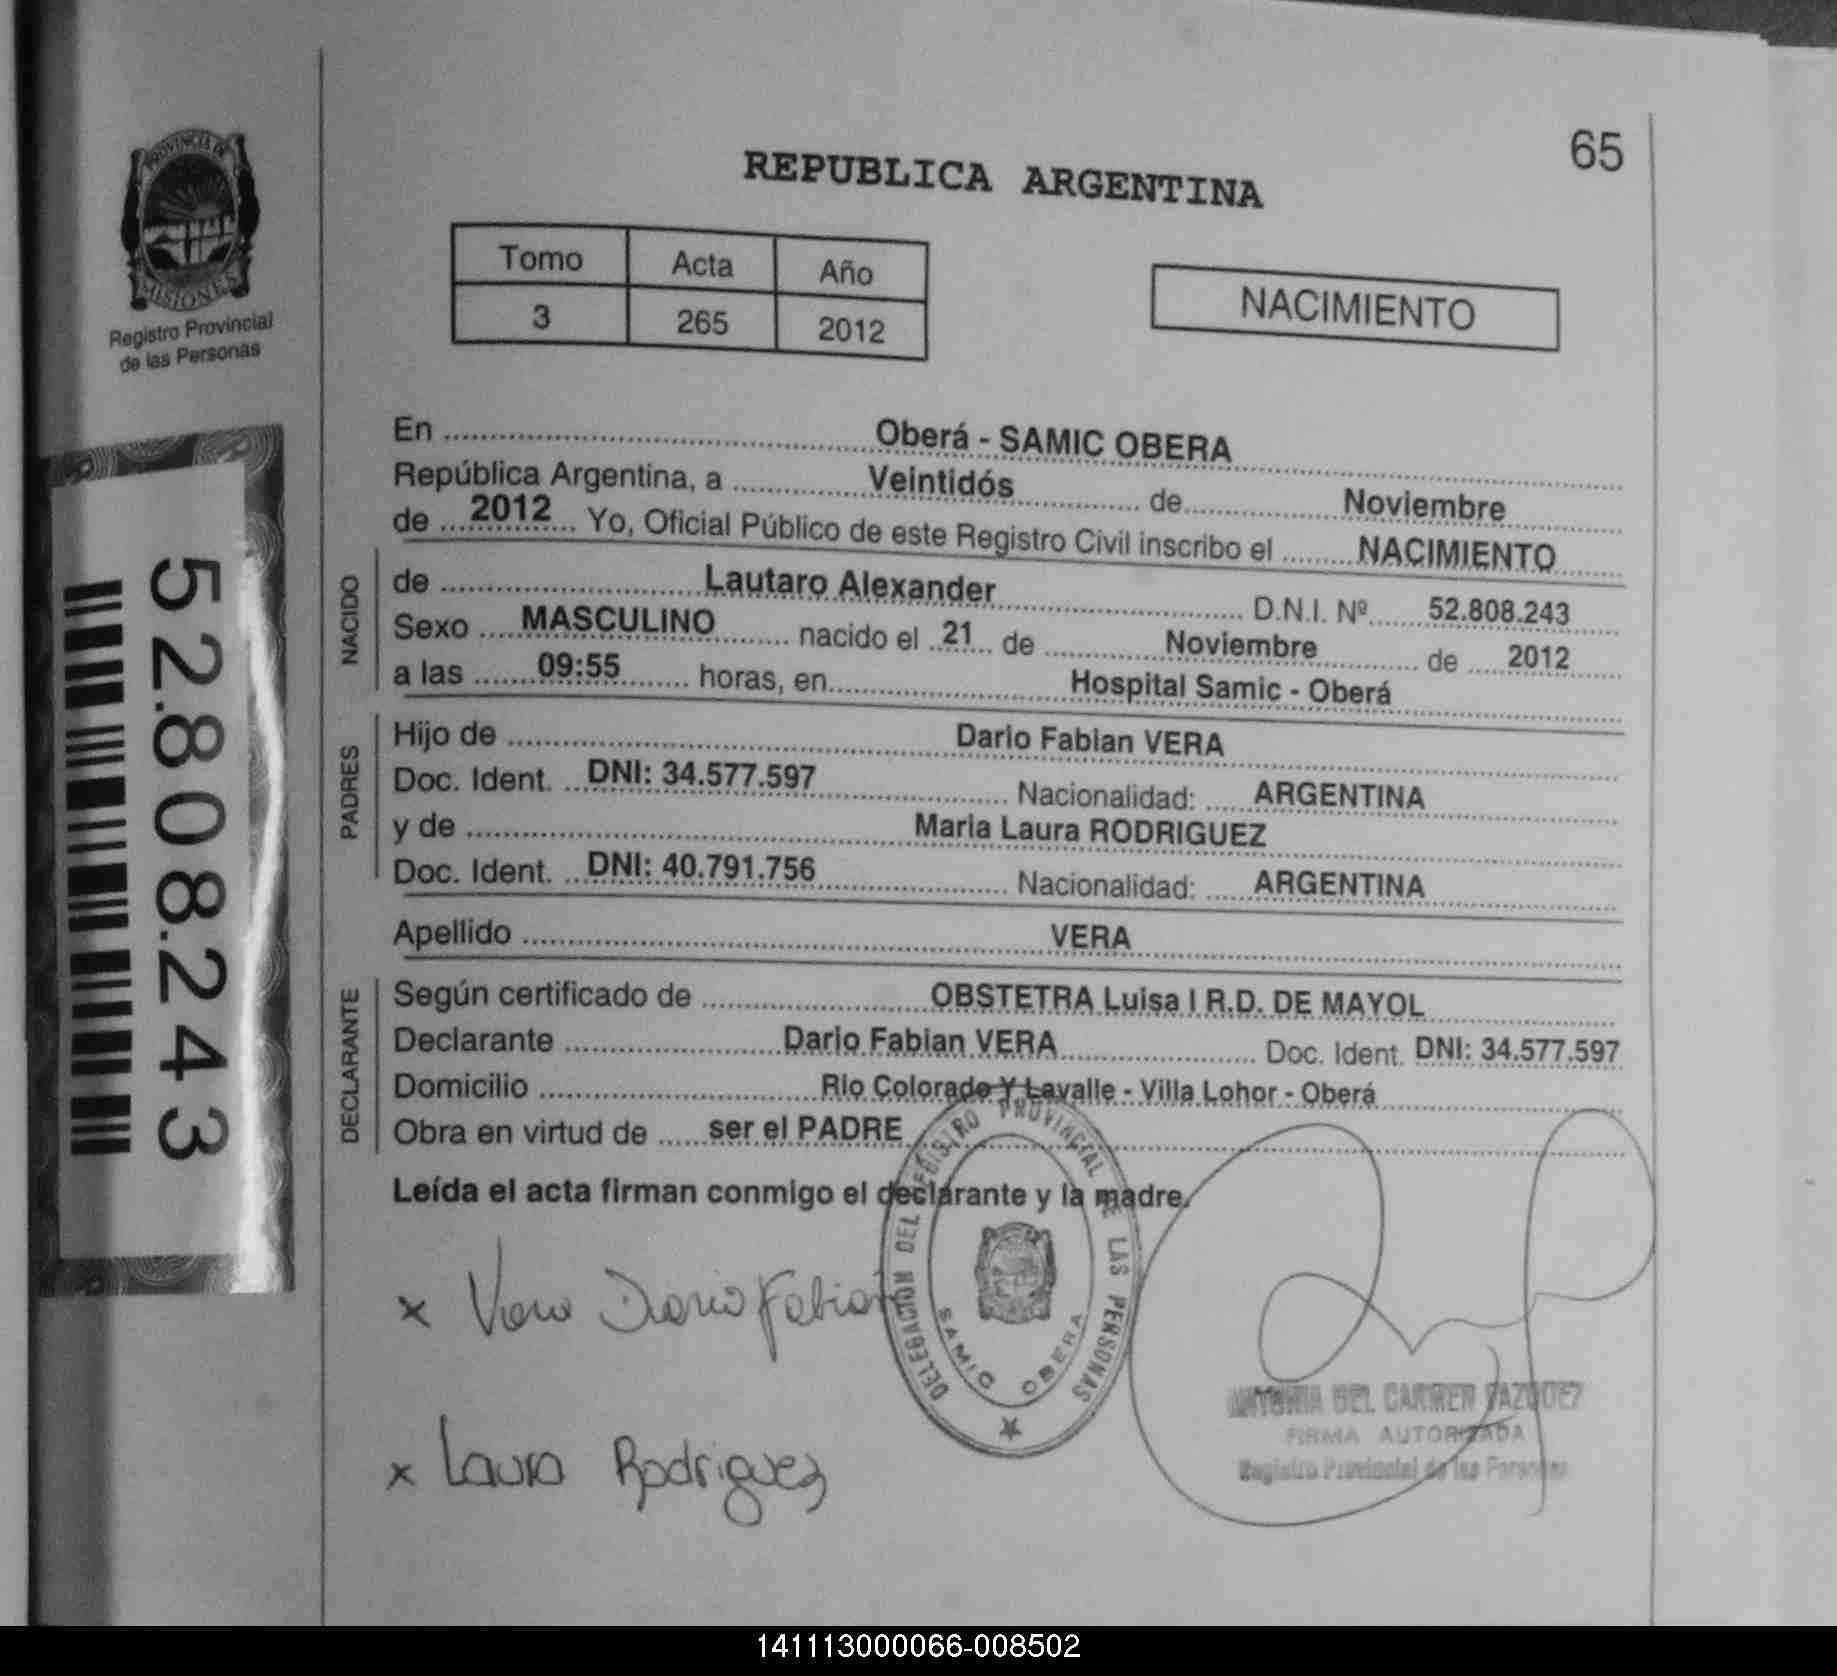 65
REPUBLICA ARGENTINA
PROVINCIA DE
MISIONES
Registro Provincial
de las Personas
Tomo Acta Año
3 265 2012
NACIMIENTO
52.808.243
En Oberá - SAMIC OBERA
República Argentina, a Veintidós de Noviembre
de 2012 Yo, Oficial Público de este Registro Civil inscribo el NACIMIENTO
NACIDO
de Lautaro Alexander D.N.I. Nº 52.808.243
Sexo MASCULINO nacido el 21 de Noviembre de 2012
a las 09:55 horas, en Hospital Samic - Oberá
PADRES
Hijo de Dario Fabian VERA
Doc. Ident. DNI: 34.577.597 Nacionalidad: ARGENTINA
y de Maria Laura RODRIGUEZ
Doc. Ident. DNI: 40.791.756 Nacionalidad: ARGENTINA
Apellido VERA
DECLARANTE
Según certificado de OBSTETRA Luisa I R.D. DE MAYOL
Declarante Dario Fabian VERA Doc. Ident. DNI: 34.577.597
Domicilio Rio Colorado Y Lavalle - Villa Lohor - Oberá
Obra en virtud de ser el PADRE
Leída el acta firman conmigo el declarante y la madre.
DELEGACION DEL REGISTRO PROVINCIAL DE LAS PERSONAS
SAMIC OBERA
x Vera Dario Fabian
x Laura Rodriguez
ANTONIA DEL CARMEN VAZQUEZ
FIRMA AUTORIZADA
Registro Provincial de las Personas
141113000066-008502